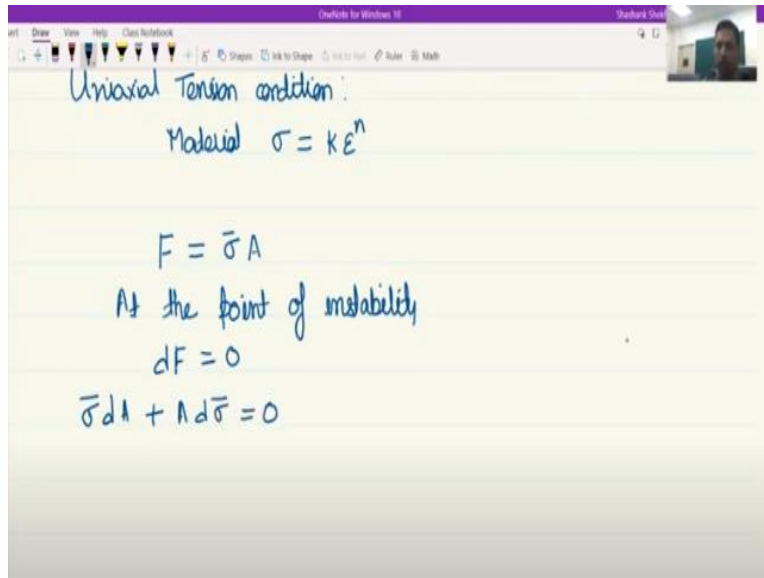 OneNote for Windows 10
Draw View Help Class Notebook
Shapes Ink to Shape Ink to Text Ruler Math
Uniaxial Tension condition:
Material σ = Kε^n
F = σ̄ A
At the point of instability
dF = 0
σ̄ dA + A dσ̄ = 0